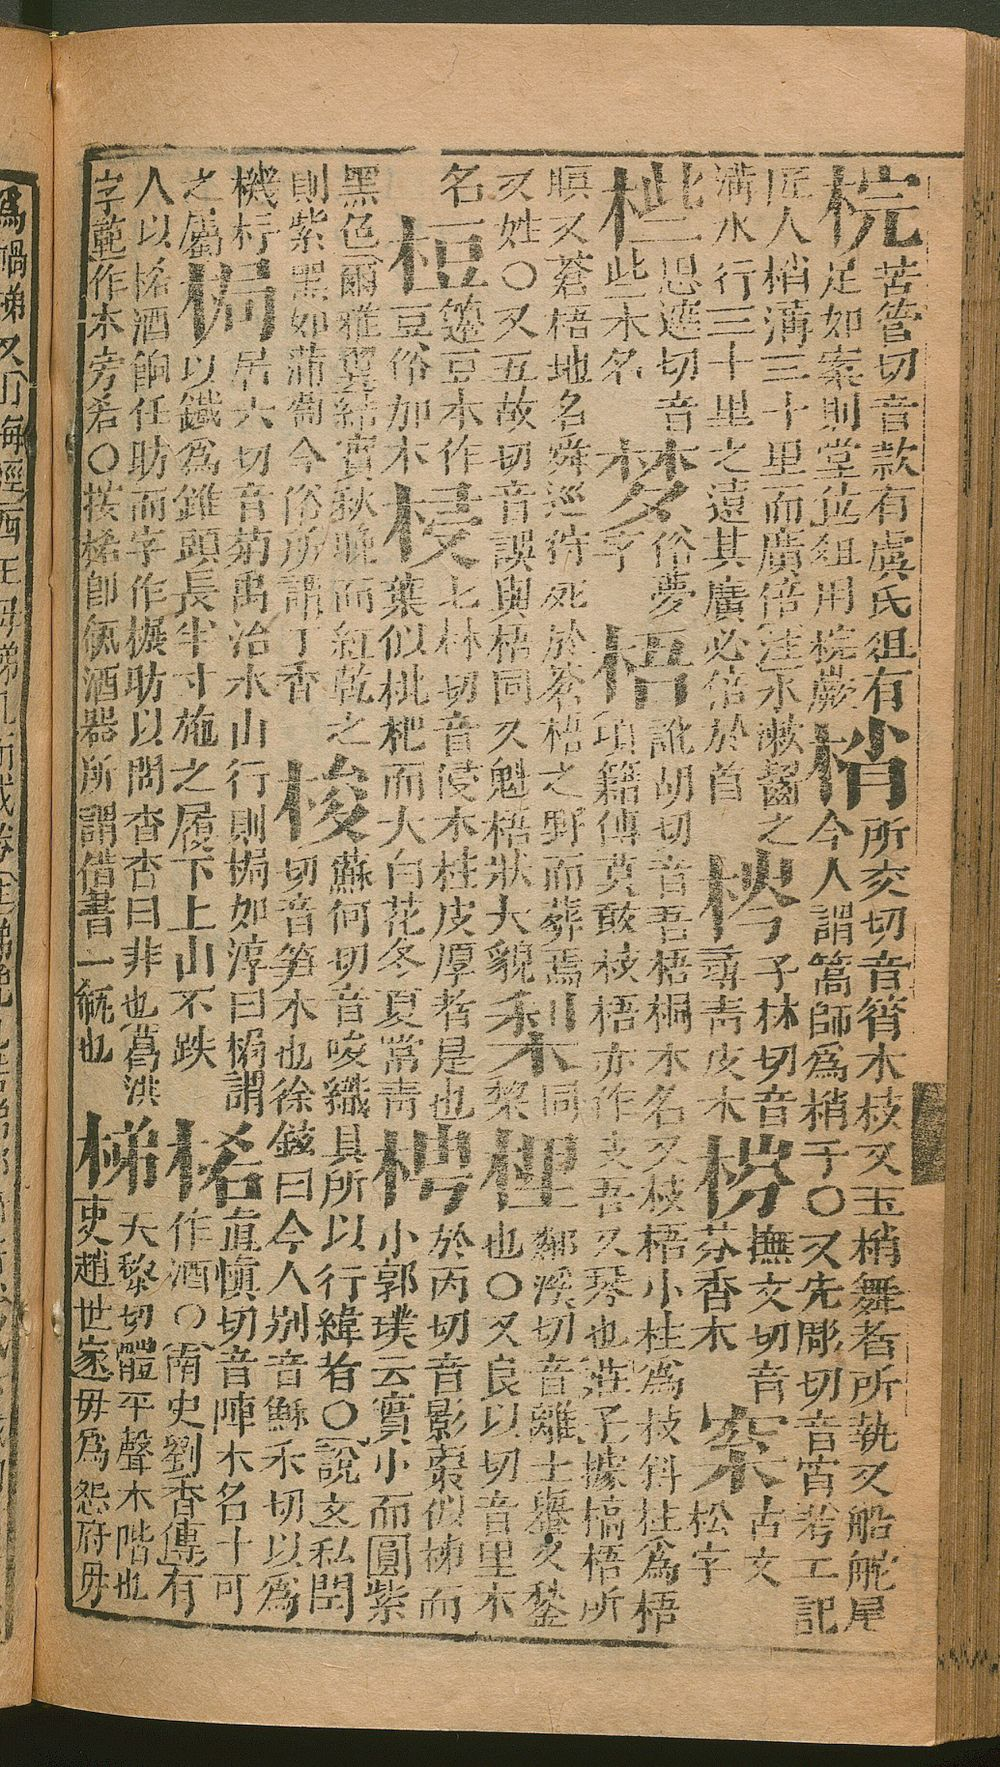 梡
苦管切音款有虞氏俎有
足如案則堂位俎用梡嶡
梢
所交切音筲木枝又玉梢舞者所執又船舵尾
今人謂篙師為梢子○又先彫切音宵考工記
匠人梢溝三十里而廣倍注水漱齧之
溝水行三十里之遠其廣必倍於首
子林切音
尋青皮木
梤
撫文切音
芬香木
古文
松字
㭰
思遮切音
些木名
梦
俗夢
字
梧
訛胡切音吾梧桐木名又枝梧小柱為枝斜柱為梧
項籍傳莫敢枝梧亦作支吾又琴也莊子據槁梧所
瞑又蒼梧地名舜巡狩死於蒼梧之野而葬焉
又姓○又五故切音誤與梧同又魁梧狀大貌
梨
同
棃
梩
鄰溪切音離土轝又鍫
也○又良以切音里木
名
梪
籩豆木作
豆俗加木
梫
七林切音侵木桂皮厚者是也
葉似枇杷而大白花冬夏常青
梬
於丙切音影棗似柹而
小郭璞云實小而圓紫
黑色爾雅翼結實秋晚而紅乾之
則紫黑如蒲萄今俗所謂丁香
梭
蘇何切音唆織具所以行緯者○說文私閏
切音筍木也徐鉉曰今人别音穌禾切以為
機杼
之屬
梮
居六切音菊禹治水山行則梮如淳曰梮謂
以鐵為錐頭長半寸施之履下上山不跌
直愼切音陣木名汁可
作酒○南史劉杳傳有
人以 酒餉任昉而字作榐昉以問杳杳曰非也葛洪
字 作木旁 ○按 即 酒器所謂借書一瓻也
梯
天黎切體平聲木階也
史趙世家毋為怨府毋
為禍梯又山海經西王母梯几